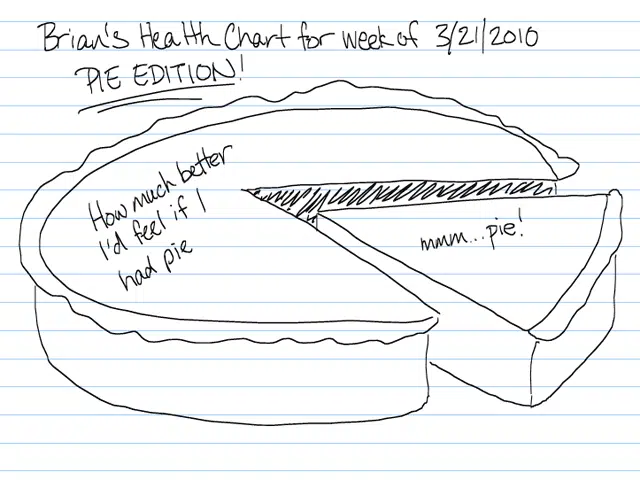 Brian's Health Chart for week of 3/21/2010
PIE EDITION!
How much better
I'd feel if I
had pie
mmm...pie!